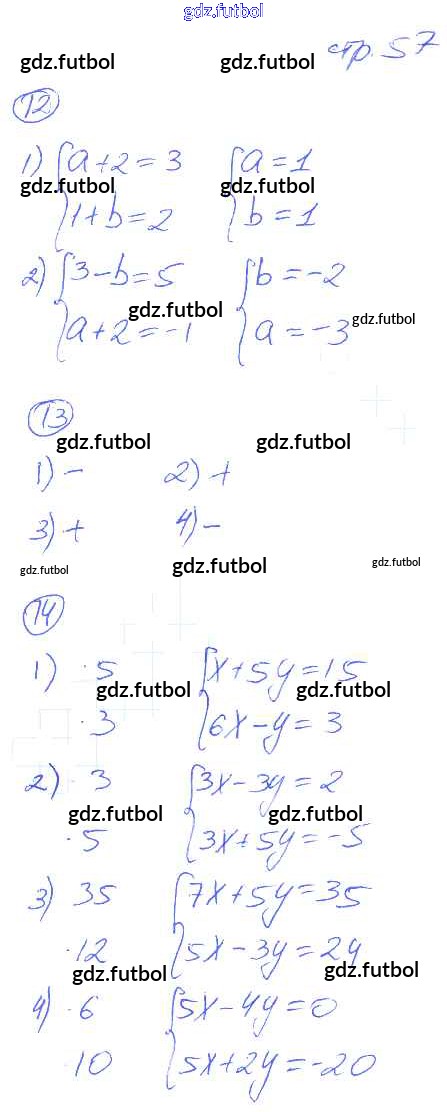 gdz.futbol
gdz.futbol gdz.futbol стр. 57
12
1) { a + 2 = 3 { a = 1
gdz.futbol gdz.futbol
1 + b = 2 b = 1
2) { 3 - b = 5 { b = -2
gdz.futbol gdz.futbol
a + 2 = -1 a = -3
13
gdz.futbol gdz.futbol
1) - 2) +
3) + 4) -
gdz.futbol gdz.futbol gdz.futbol
14
1) ·5 { x + 5y = 15
gdz.futbol gdz.futbol
·3 6x - y = 3
2) ·3 { 3x - 3y = 2
gdz.futbol gdz.futbol
·5 3x + 5y = -5
3) 35 { 7x + 5y = 35
·12 5x - 3y = 24
gdz.futbol gdz.futbol
4) ·6 { 5x - 4y = 0
10 5x + 2y = -20